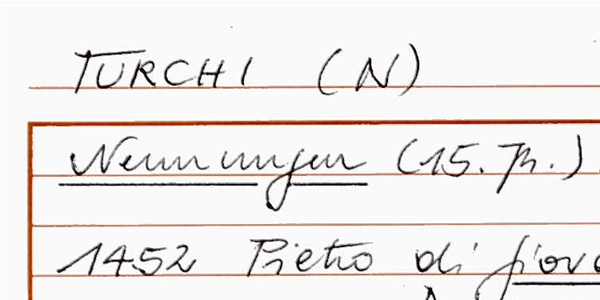 TURCHI (N)
Nennungen (15. Jh.)
1452 Pietro di Giova